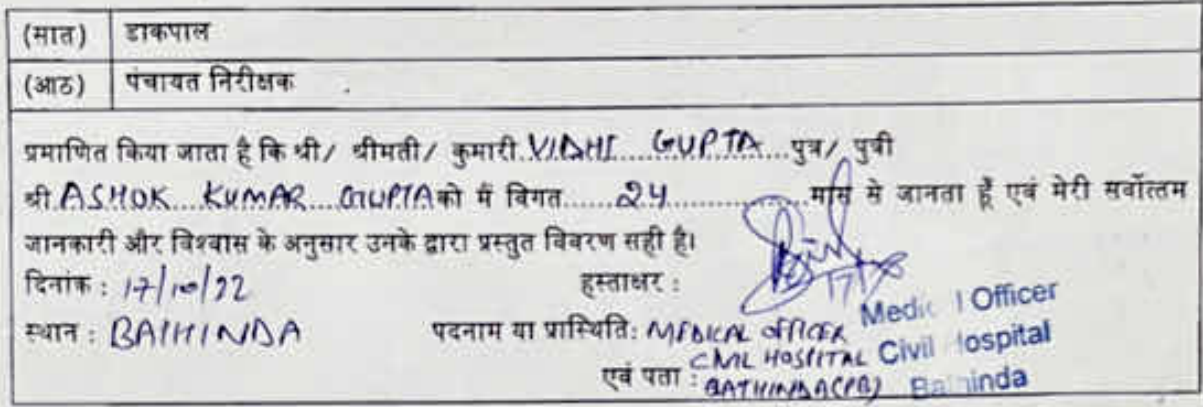 (सात) डाकपाल
(आठ) पंचायत निरीक्षक
प्रमाणित किया जाता है कि श्री/ श्रीमती/ कुमारी VIDHI GUPTA पुत्र/ पुत्री
श्री ASHOK KUMAR GUPTA को मैं विगत 24 मास से जानता हूँ एवं मेरी सर्वोत्तम
जानकारी और विश्वास के अनुसार उनके द्वारा प्रस्तुत विवरण सही है।
दिनांक : 17/10/22 हस्ताक्षर :
स्थान : BATHINDA पदनाम या प्रास्थिति: MEDICAL OFFICER
CIVIL HOSPITAL
एवं पता : BATHINDA (PB)
Medical Officer
Civil Hospital
Bathinda